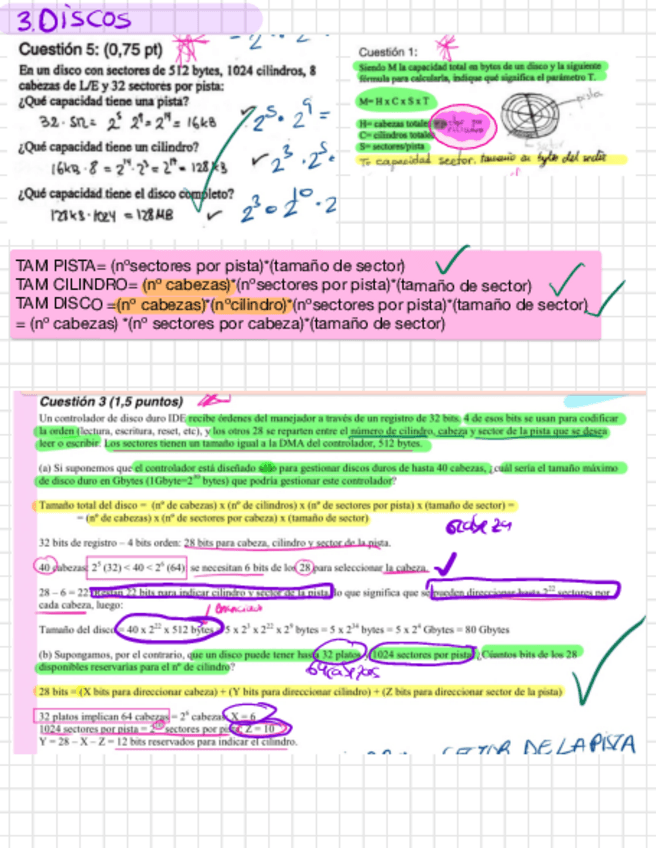 3. DISCOS
Cuestión 5: (0,75 pt)
En un disco con sectores de 512 bytes, 1024 cilindros, 8
cabezas de L/E y 32 sectores por pista:
¿Qué capacidad tiene una pista?
32 · 512 = 2⁵ 2⁹ = 2¹⁴ = 16kB
¿Qué capacidad tiene un cilindro?
16kB · 8 = 2¹⁴ · 2³ = 2¹⁷ = 128kB
¿Qué capacidad tiene el disco completo?
128kB · 1024 = 128MB
2⁵ · 2⁹ =
2³ · 2⁵ ·
2³ · 2¹⁰ · 2
Cuestión 1:
Siendo M la capacidad total en bytes de un disco y la siguiente
fórmula para calcularla, indique qué significa el parámetro T.
M=H x C x S x T
H= cabezas totales
C= cilindros totales
S= sectores/pista
pista
T= capacidad sector. tamaño en bytes del sector
TAM PISTA= (nºsectores por pista)*(tamaño de sector)
TAM CILINDRO= (nº cabezas)*(nºsectores por pista)*(tamaño de sector)
TAM DISCO =(nº cabezas)*(nºcilindro)*(nºsectores por pista)*(tamaño de sector)
= (nº cabezas) *(nº sectores por cabeza)*(tamaño de sector)
Cuestión 3 (1,5 puntos)
Un controlador de disco duro IDE recibe órdenes del manejador a través de un registro de 32 bits. 4 de esos bits se usan para codificar
la orden (lectura, escritura, reset, etc), y los otros 28 se reparten entre el número de cilindro, cabeza y sector de la pista que se desea
leer o escribir. Los sectores tienen un tamaño igual a la DMA del controlador, 512 bytes.
(a) Si suponemos que el controlador está diseñado sólo para gestionar discos duros de hasta 40 cabezas, ¿cuál sería el tamaño máximo
de disco duro en Gbytes (1Gbyte=2³⁰ bytes) que podría gestionar este controlador?
Tamaño total del disco = (nº de cabezas) x (nº de cilindros) x (nº de sectores por pista) x (tamaño de sector) =
= (nº de cabezas) x (nº de sectores por cabeza) x (tamaño de sector)
32 bits de registro – 4 bits orden: 28 bits para cabeza, cilindro y sector de la pista.
40 cabezas: 2⁵ (32) < 40 < 2⁶ (64) se necesitan 6 bits de los 28 para seleccionar la cabeza.
28 – 6 = 22 restan 22 bits para indicar cilindro y sector de la pista, lo que significa que se pueden direccionar hasta 2²² sectores por
cada cabeza, luego:
Tamaño del disco = 40 x 2²² x 512 bytes = 5 x 2³ x 2²² x 2⁹ bytes = 5 x 2³⁴ bytes = 5 x 2⁴ Gbytes = 80 Gbytes
(b) Supongamos, por el contrario, que un disco puede tener hasta 32 platos y 1024 sectores por pista. ¿Cúantos bits de los 28
disponibles reservarías para el nº de cilindro?
64 cabezas
28 bits = (X bits para direccionar cabeza) + (Y bits para direccionar cilindro) + (Z bits para direccionar sector de la pista)
32 platos implican 64 cabezas = 2⁶ cabezas, X = 6
1024 sectores por pista = 2¹⁰ sectores por pista, Z = 10
Y = 28 – X – Z = 12 bits reservados para indicar el cilindro.
SECTOR DE LA PISTA